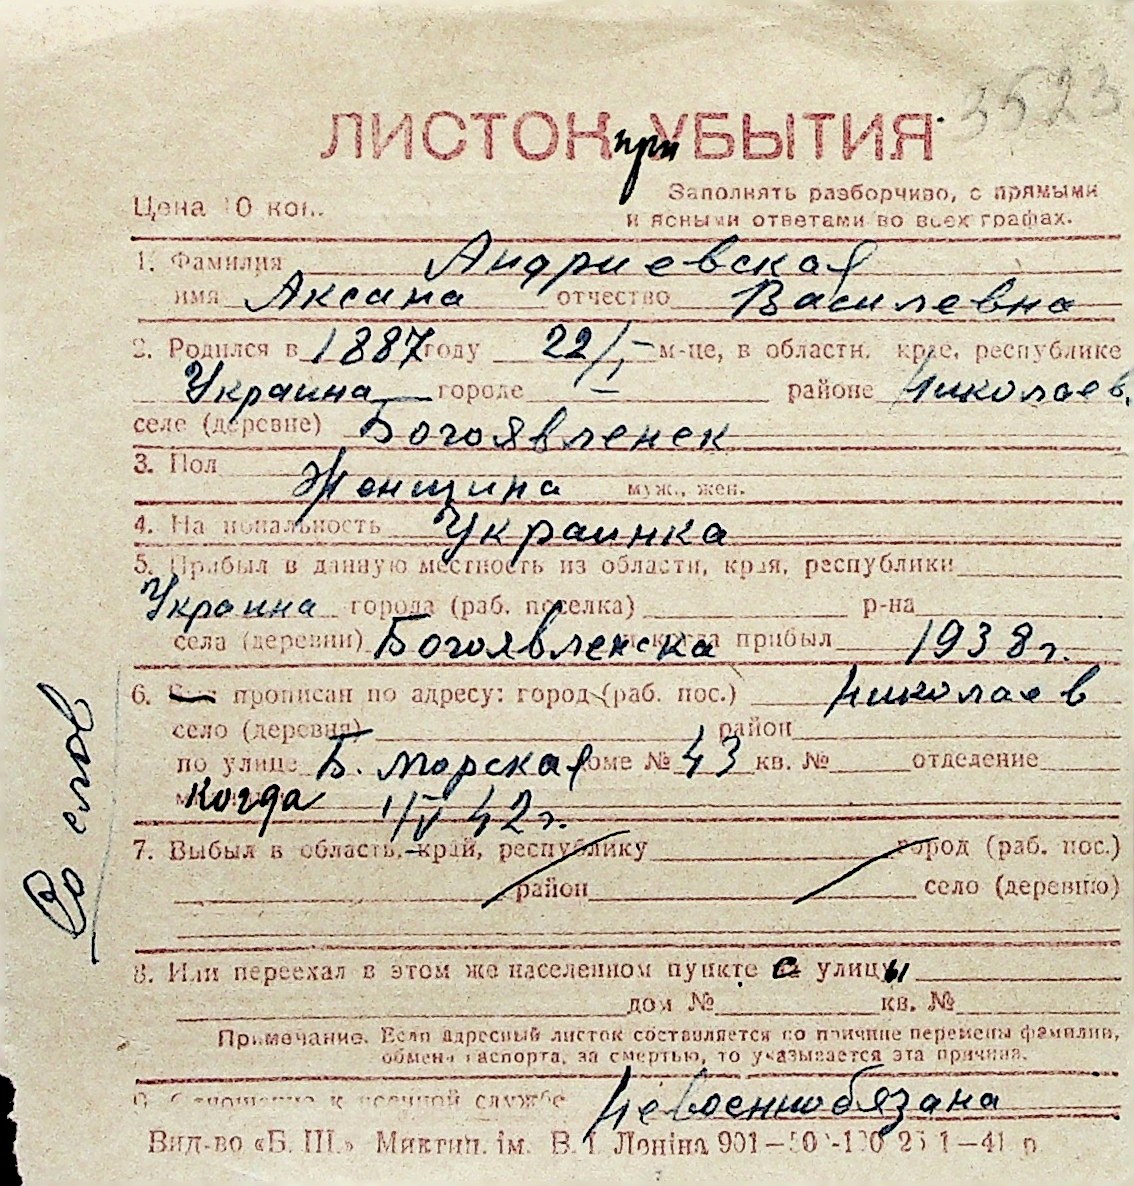 3523
ЛИСТОК при УБЫТИЯ
Цена 10 коп. Заполнять разборчиво, с прямыми
и ясными ответами во всех графах.
1. Фамилия Андриевская
имя Аксана отчество Василевна
2. Родился в 1887 году 22/I м-це, в области, крае, республике
Украина городе — районе Николаев.
селе (деревне) Богоявленск
3. Пол Женщина муж., жен.
4. Национальность Украинка
5. Прибыл в данную местность из области, края, республики
Украина города (раб. поселка) р-на
села (деревни) Богоявленска и когда прибыл 1938 г.
6. прописан по адресу: город (раб. пос.) Николаев
село (деревня) район
по улице Б. Морская доме № 43 кв. № отделение
Когда 1/IV 42 г.
Со слов
7. Выбыл в область, край, республику город (раб. пос.)
район село (деревню)
8. Или переехал в этом же населенном пункте с улицы
дом № кв. №
Примечание. Если адресный листок составляется по причине перемены фамилии,
обмена паспорта, за смертью, то указывается эта причина.
9. Отношение к военной службе Невоеннобязана
Вид-во «Б. Ш.» Миктип. ім. В. І. Леніна 901—50 -100 25 1—41 р